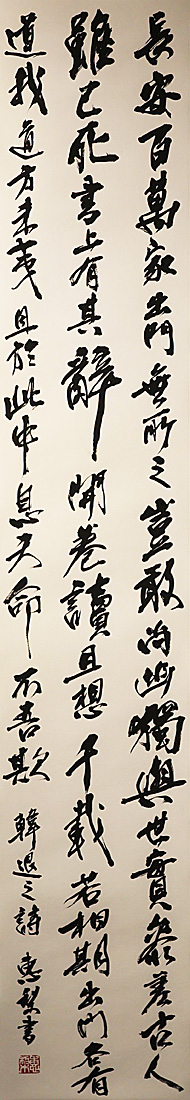 長安百萬家出門無所之豈敢尚幽獨與世實參差古人
雖已死書上有其辭開卷讀且想千載若相期出門各有
道我道方未夷且於此中息天命不吾欺 韓退之詩 惠書